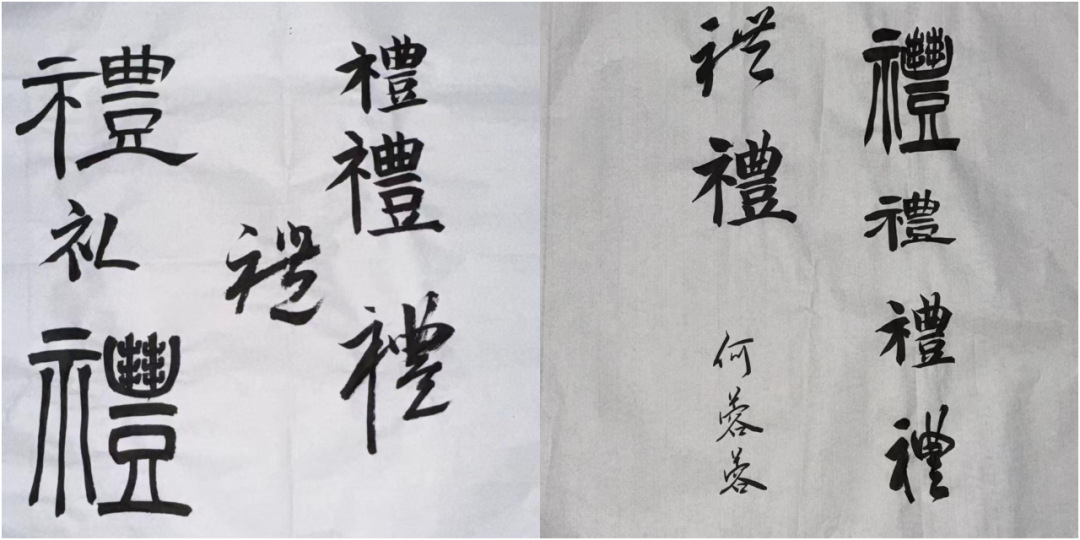 禮禮禮
禮
禮礼禮
禮禮禮禮
禮禮
何蓉蓉